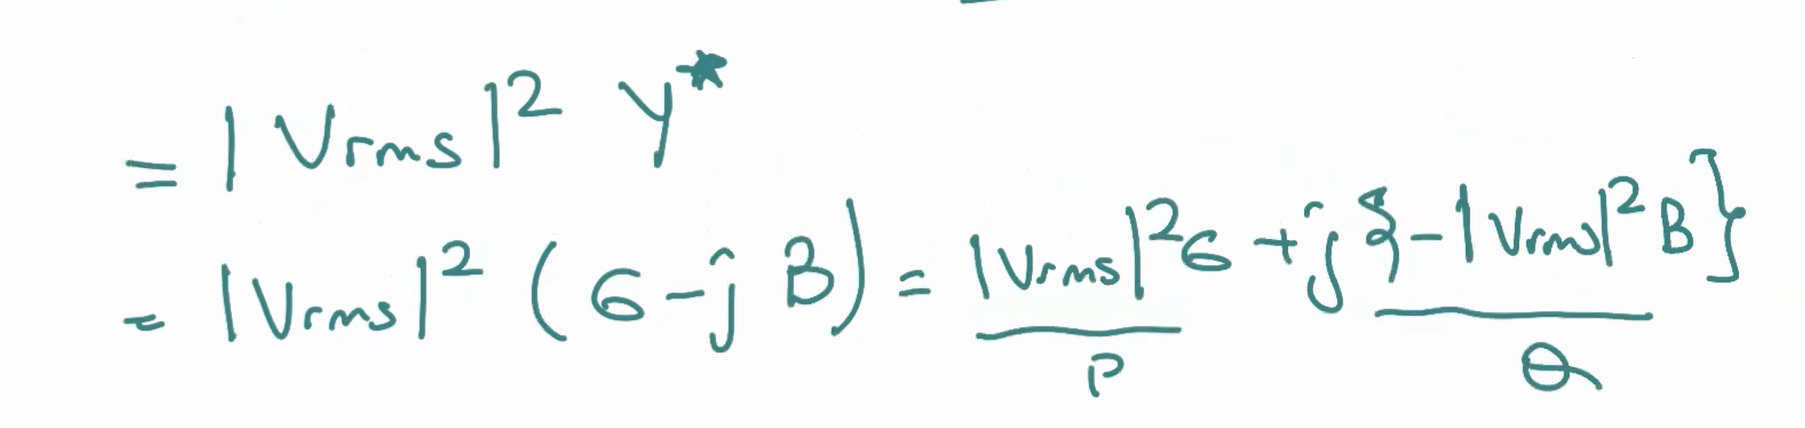 = |Vrms|² Y*
= |Vrms|² (G-jB) = |Vrms|²G + j{-|Vrms|²B}
P Q